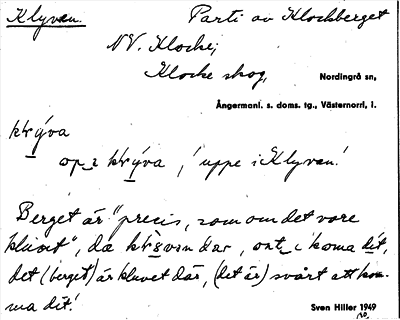 Klyvan.
Parti av Klockberget
NV. Klocke,
Klocke skog,
Nordingrå sn,
Ångermanl. s. doms. tg., Västernorrl. l.
op
, 'uppe i Klyvan.'
Berget är "precis, som om det vore
kluvt", dä dar, i koma dit,
det (berget) är kluvet där, (det är) svårt att kom-
ma dit.'
Sven Hiller 1949